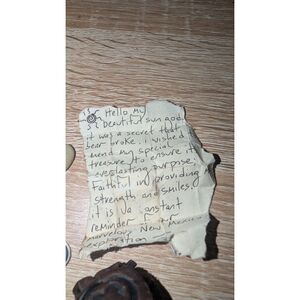 Hello, my
beautiful sun god,
it was a secret that
bear broke. i wished
mend my special
treasure to ensure it
everlasting purpose,
Faithful in providing
strength and smiles.
it is a constant
reminder
marvelous New Mexico
exploration